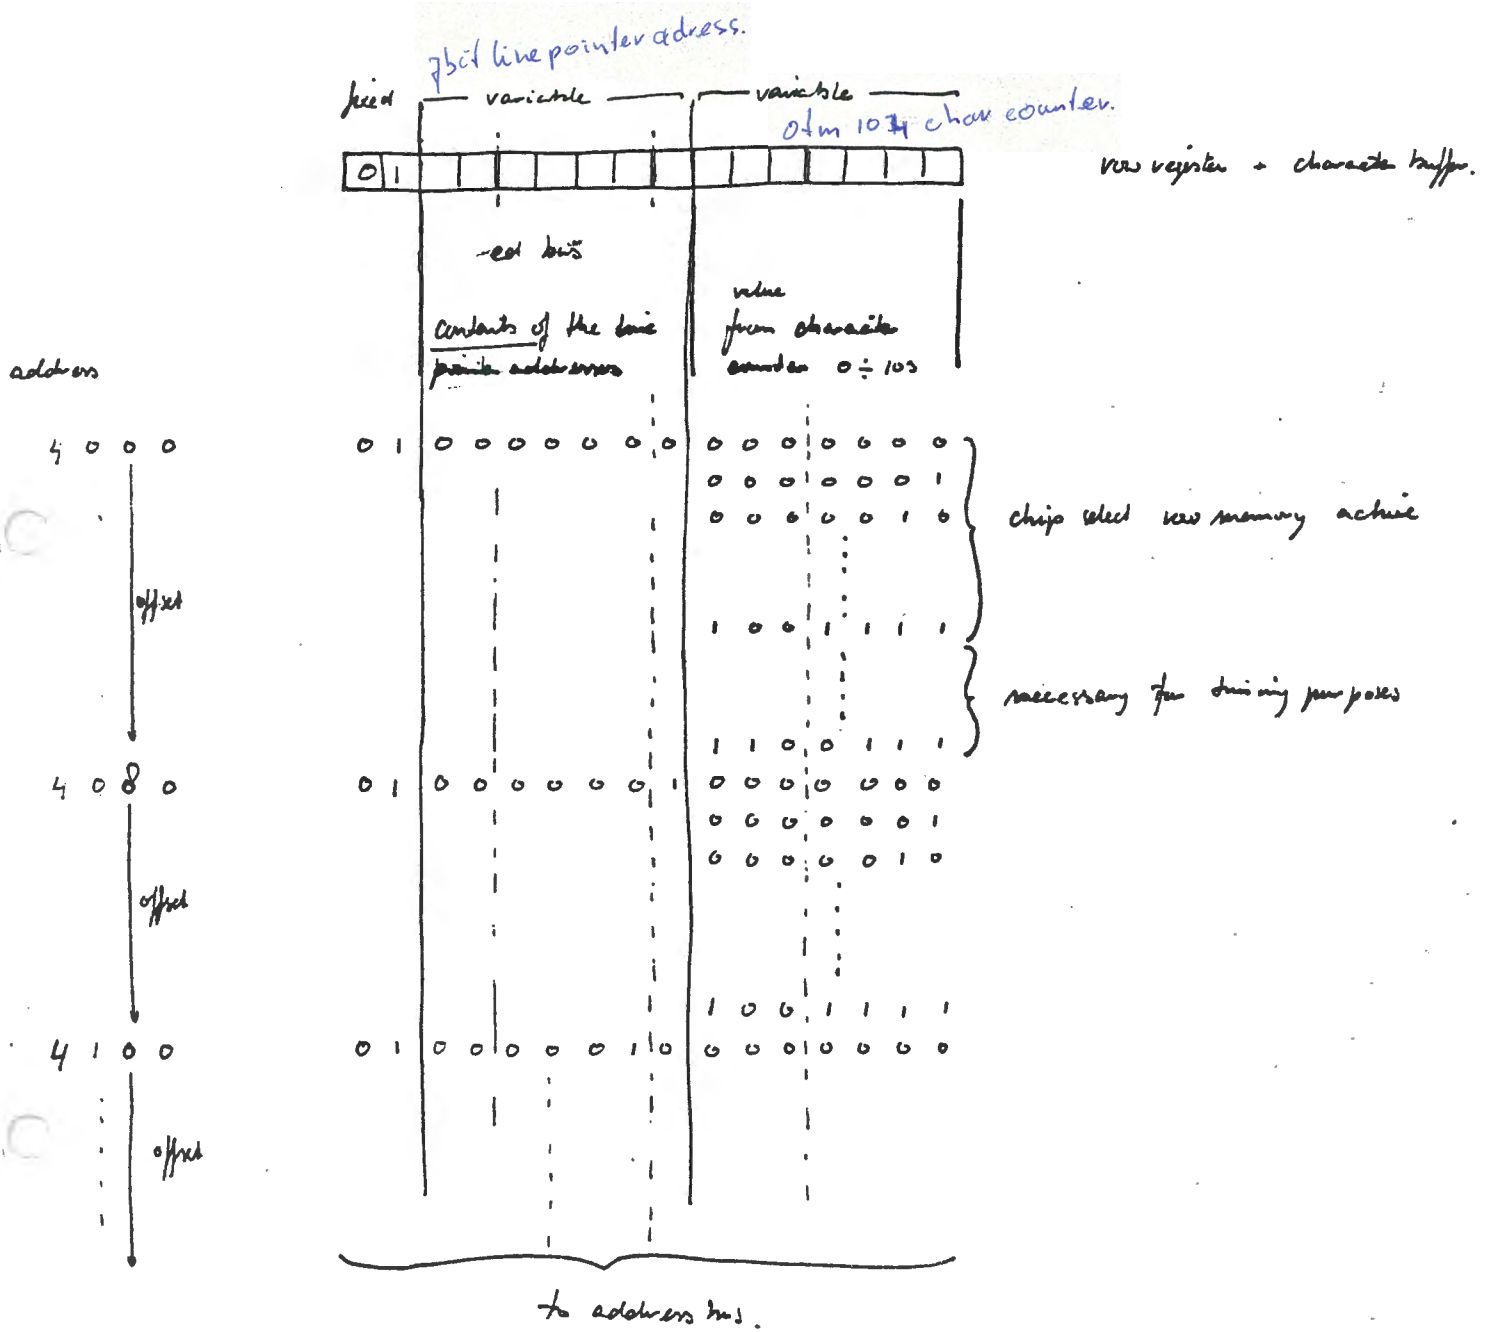 7bit line pointer adress.
fixed variable variable
0 t/m 104 char counter.
0 1
row register + character buffer.
-ed bus
contents of the line
pointer addresses
value
from character
counter 0 ÷ 103
address
4 0 0 0 0 1 0 0 0 0 0 0 0 0 0 0 0 0 0 0
0 0 0 0 0 0 1
0 0 0 0 0 1 0
chip select row memory active
offset
1 0 0 1 1 1 1
necessary for timing purposes
1 1 0 0 1 1 1
4 0 8 0 0 1 0 0 0 0 0 0 1 0 0 0 0 0 0 0
0 0 0 0 0 0 1
0 0 0 0 0 1 0
offset
1 0 0 1 1 1 1
4 1 0 0 0 1 0 0 0 0 0 1 0 0 0 0 0 0 0 0
offset
to address bus.